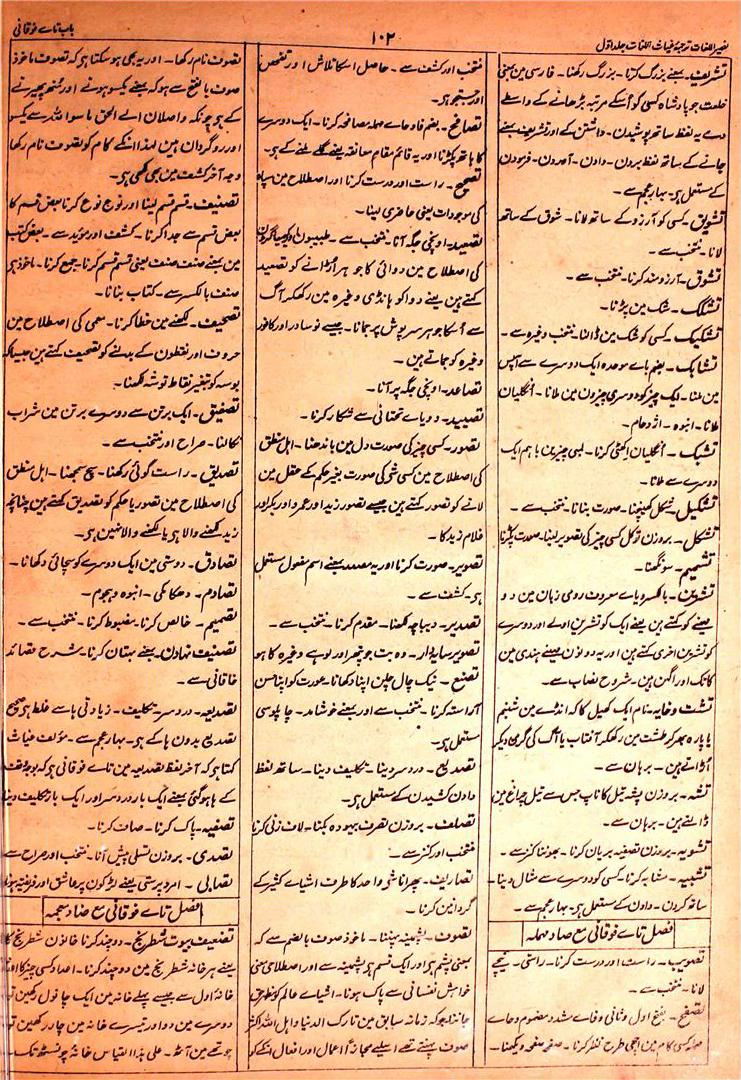 نصیر اللغات ترجمۂ غیاث اللغات جلد اول
۱۰۲
باب تاے فوقانی
تشریف۔ بمعنے بزرگ کرنا۔ بزرگ رکھنا۔ فارسی مین بمعنی
خلعت جو بادشاہ کسی کو اُسکے مرتبہ بڑھانے کے واسطے
دے یہ لفظ ساتھ پوشیدن۔ داشتن کے اور تشریف بمعنے
جانے کے ساتھ لفظ بردن۔ دادن۔ آمدون۔ فرمودن
کے مستعمل ہی۔ بہار عجم سے۔
تشویق۔ کسی کو آرزو کے ساتھ لانا۔ شوق کے ساتھ
لانا۔ منتخب سے۔
تشوق۔ آرزومند کرنا۔ منتخب سے۔
تشکک۔ شک مین پڑنا۔
تشکیک۔ کسی کو شک مین ڈالنا۔ منتخب وغیرہ سے۔
تشابک۔ بضم باے موحدہ ایک دوسرے سے آپس
مین ملنا۔ ایک چیز کو دوسری چیزون مین ملانا۔ اُنگلیان
ملانا۔ انبوہ۔ اژدحام۔
تشبک۔ اُنگلیان اکھٹی کرنا۔ لمبی چیزین باہم ایک
دوسرے سے ملانا۔
تشکیل۔ شکل کھینچنا۔ صورت بنانا۔ منتخب سے۔
تشکل۔ بروزن توکل کسی چیز کی تصویر لینا۔ صورت پکڑنا
تشمیم۔ سونگھنا۔
تشرین۔ بالکسر ویاے معروف رومی زبان مین دو
مہینے کو کہتے ہین یعنے ایک کو تشرین اولے اور دوسرے
کو تشرین اخری کہتے ہین اور یہ دونون مہینے ہندی مین
کاتک اور اگہن ہین۔ شروح نصاب سے۔
تشت وخایہ۔ نام ایک کھیل کا کہ انڈے مین شبنم
یا پارہ بھر کر طشت مین رکھکر آفتاب یا آگ کی گرمی دیکر
اُڑاتے ہین۔ برہان سے۔
تشہ۔ بروزن پشہ تیل کا ناپ جس سے تیل چراغ مین
ڈالتے ہین۔ برہان سے۔
تشویہ۔ بروزن تصفیہ بریان کرنا۔ بھوننا کنز سے۔
تشبیہ۔ مشابہ کرنا کسی کو دوسرے سے مثال دینا۔
ساتھ کردن۔ دادن کے مستعمل ہی۔ بہار عجم سے۔
فصل تاے فوقانی مع صاد مہملہ
تصویب۔ راست اور درست کرنا۔ راستی۔ نیچے
لانا۔ منتخب سے۔
تصفح۔ بفتح اول وثانی وفاے مشدد مضموم وحاے
مہملہ کسی کام مین اچھی طرح نظر کرنا۔ صفحہ صفحہ دیکھنا۔
منتخب اور کشف سے۔ حاصل اسکا تلاش اور تفحص
اور جستجو ہی۔
تصافح۔ بضم فا وحاے مہملہ مصافحہ کرنا۔ ایک دوسرے
کا ہاتھ پکڑنا اور یہ قائم مقام معانقہ یعنے گلے ملنے کے ہی۔
تصحیح۔ راست اور درست کرنا اور اصطلاح مین سپاہ
کی موجودات یعنی حاضری لینا۔
تصعید۔ اونچی جگہ آنا۔ منتخب سے۔ طبیبون اور کیمیاگرون
کی اصطلاح مین دوائی کا جوہر اُڑانے کو تصعید
کہتے ہین یعنے دوا کو ہانڈی وغیرہ مین رکھکر آگ
سے اُسکا جوہر سرپوش پر جمانا۔ جیسے نوسادر اور کافور
وغیرہ کو جماتے ہین۔
تصاعد۔ اونچی جگہ پر آنا۔
تصیید۔ دو یاے تحتانی سے شکار کرنا۔
تصور۔ کسی چیز کی صورت دل مین باندھنا۔ اہل منطق
کی اصطلاح مین کسی شی کی صورت بغیر حکم کے عقل مین
لانے کو تصور کہتے ہین جیسے تصور زید اور عمرو اور بکر اور
غلام زید کا۔
تصویر۔ صورت کرنا اور یہ مصدر بمعنے اسم مفعول مستعمل
ہی۔ کشف سے۔
تصدیر۔ دیباچہ لکھنا۔ مقدم کرنا۔ منتخب سے۔
تصویر سایہ دار۔ وہ بت جو پتھر اور لوہے وغیرہ کا ہو
تصنع۔ نیک چال چلن اپنا دکھانا۔ عورت کو اپنا حسن
آراستہ کرنا۔ منتخب سے اور بمعنے خوشامد۔ چاپلوسی
مستعمل ہی۔
تصدیع۔ درد سر دینا۔ تکلیف دینا۔ ساتھ لفظ
دادن کشیدن کے مستعمل ہی۔
تصلف۔ بروزن تصرف بیہودہ بکنا۔ لاف زنی کرنا
منتخب اور کنز سے۔
تصاریف۔ پھرانا شی واحد کا طرف اشیاے کثیر کے
گردانین کرنا۔
تصوف۔ پشمینہ پہننا۔ ماخوذ صوف بالضم سے کہ
بمعنی پشم ہی اور ایک قسم ہی پشمینہ سے اور اصطلاحی معنی
خواہش نفسانی سے پاک ہونا۔ اشیاے عالم کو مظہر حق
جاننا۔ چونکہ زمانہ سابق مین تارک الدنیا واہل اللہ اکثر
صوف پہنتے تھے اسلیے مجازاً اعمال اور افعال انکے کو
تصوف نام رکھا۔ اور یہ بھی ہوسکتا ہی کہ تصوف ماخوذ
صوف بالفتح سے ہو کہ بمعنے یکسو ہونے اور مُنھ پھیرنے
کے ہی چونکہ واصلان الے الحق ما سوا اللہ سے یکسو
اور روگردان ہین لہٰذا انکے کام کو تصوف نام رکھا
وجہ آخر کشف مین بھی لکھی ہی۔
تصنیف۔ قسم قسم لینا اور نوع نوع کرنا بعض قسم کا
بعض قسم سے جدا کرنا۔ کشف اور مؤید سے۔ بعض کتب
مین بمعنے صنف صنف یعنی قسم قسم کرنا۔ جمع کرنا۔ ماخوذ ہی
صنف بالکسر سے۔ کتاب بنانا۔
تصحیف۔ لکھنے مین خطا کرنا۔ معمی کی اصطلاح مین
حروف اور نقطون کے بدلنے کو تصحیف کہتے ہین جیسا کہ
بوسہ کو بتغیر نقاط توشہ لکھنا۔
تصفیق۔ ایک برتن سے دوسرے برتن مین شراب
نکالنا۔ صراح اور منتخب سے۔
تصدیق۔ راست گوئی رکھنا۔ سچ سمجھنا۔ اہل منطق
کی اصطلاح مین تصور یا حکم کو تصدیق کہتے ہین چنانچہ
زید لکھنے والا ہی یا لکھنے والا نہین ہی۔
تصادق۔ دوستی مین ایک دوسرے کو سچائی دکھانا۔
تصادم۔ دھکا مکی۔ انبوہ وہجوم۔
تصمیم۔ خالص کرنا۔ مضبوط کرنا۔ منتخب سے۔
تصنیف نہادن۔ بمعنے بہتان کرنا۔ شرح قصائد
خاقانی سے۔
تصدیعہ۔ درد سر۔ تکلیف۔ زیادتی ہا سے غلط ہی صحیح
تصدیع بدون ہا کے ہی۔ بہار عجم سے۔ مؤلف غیاث
کہتا ہی کہ آخر لفظ تصدیعہ مین تاے فوقانی ہی کہ بوجہ وقف
کے ہا ہوگئی بمعنے ایک بار درد سر اور ایک بار تکلیف دینا
تصفیہ۔ پاک کرنا۔ صاف کرنا۔
تصدی۔ بروزن تسلی پیش آنا۔ منتخب اور صراح سے
تصابی۔ امرد پرستی یعنے لڑکون پر عاشق اور فریفتہ ہونا
فصل تاے فوقانی مع ضاد معجمہ
تضعیف بیوت شطرنج۔ دوچند کرنا خانون شطرنج کا
یعنے ہر خانہ شطرنج مین دوچند کرنا۔ اعداد کسی چیز کا
خانۂ اول سے جیسے پہلے خانہ مین ایک چانول رکھین تو
دوسرے مین دو اور تیسرے خانہ مین چار رکھین تو
چوتھے مین آٹھ۔ علی ہذا القیاس خانۂ چونسٹھ تک